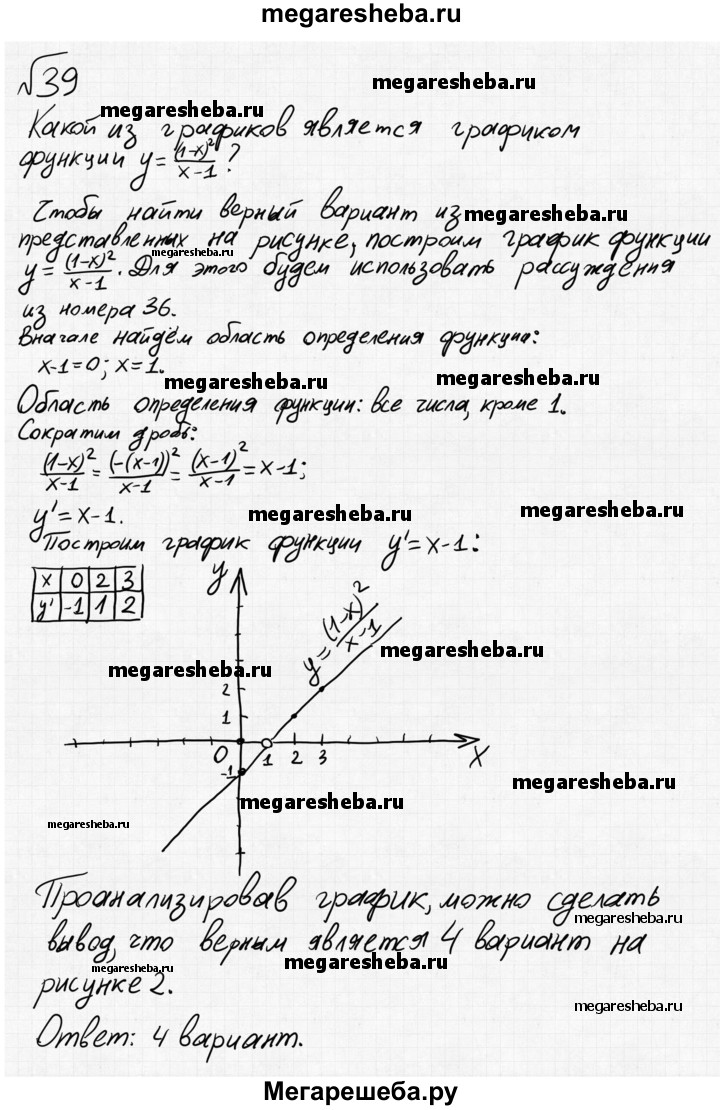 megaresheba.ru
√39
megaresheba.ru
megaresheba.ru
Какой из графиков является графиком
функции y=(1-x)²/x-1?
Чтобы найти верный вариант из megaresheba.ru
представленных на рисунке, построим график функции
y=(1-x)²/x-1. Для этого будем использовать рассуждения
megaresheba.ru
из номера 36.
Вначале найдём область определения функции:
x-1=0; x=1.
megaresheba.ru megaresheba.ru
Область определения функции: все числа, кроме 1.
Сократим дробь:
(1-x)²/x-1=(-(x-1))²/x-1=(x-1)²/x-1=x-1;
y'=x-1. megaresheba.ru megaresheba.ru
Построим график функции y'=x-1:
x 0 2 3
y' -1 1 2
y
y=(1-x)²/x-1
megaresheba.ru
megaresheba.ru
2
1
0 1 2 3 x
-1
megaresheba.ru
megaresheba.ru
megaresheba.ru
Проанализировав график, можно сделать
megaresheba.ru
вывод, что верным является 4 вариант на
megaresheba.ru megaresheba.ru
рисунке 2.
megaresheba.ru
Ответ: 4 вариант.
Мегарешеба.ру